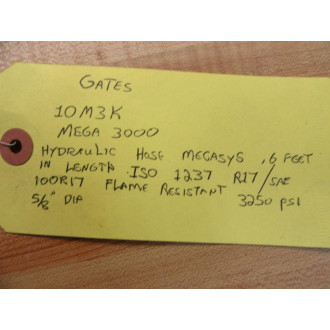 GATES
10M3K
MEGA 3000
HYDRAULIC HOSE MEGASYS, 6 FEET
IN LENGTH ISO 1237 R17/SAE
100R17 FLAME RESISTANT
5/8" DIA 3250 PSI